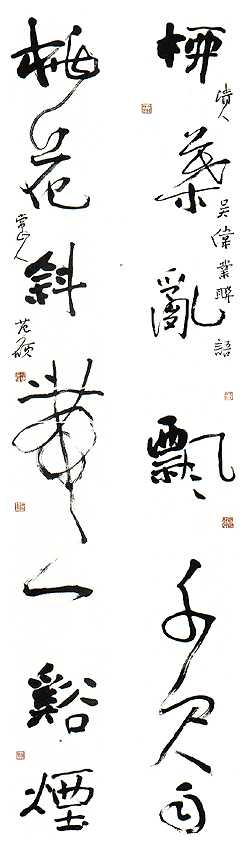 桺葉亂飄千尺雨
清人吴偉業聯語
桃花斜帶一谿煙
范碩